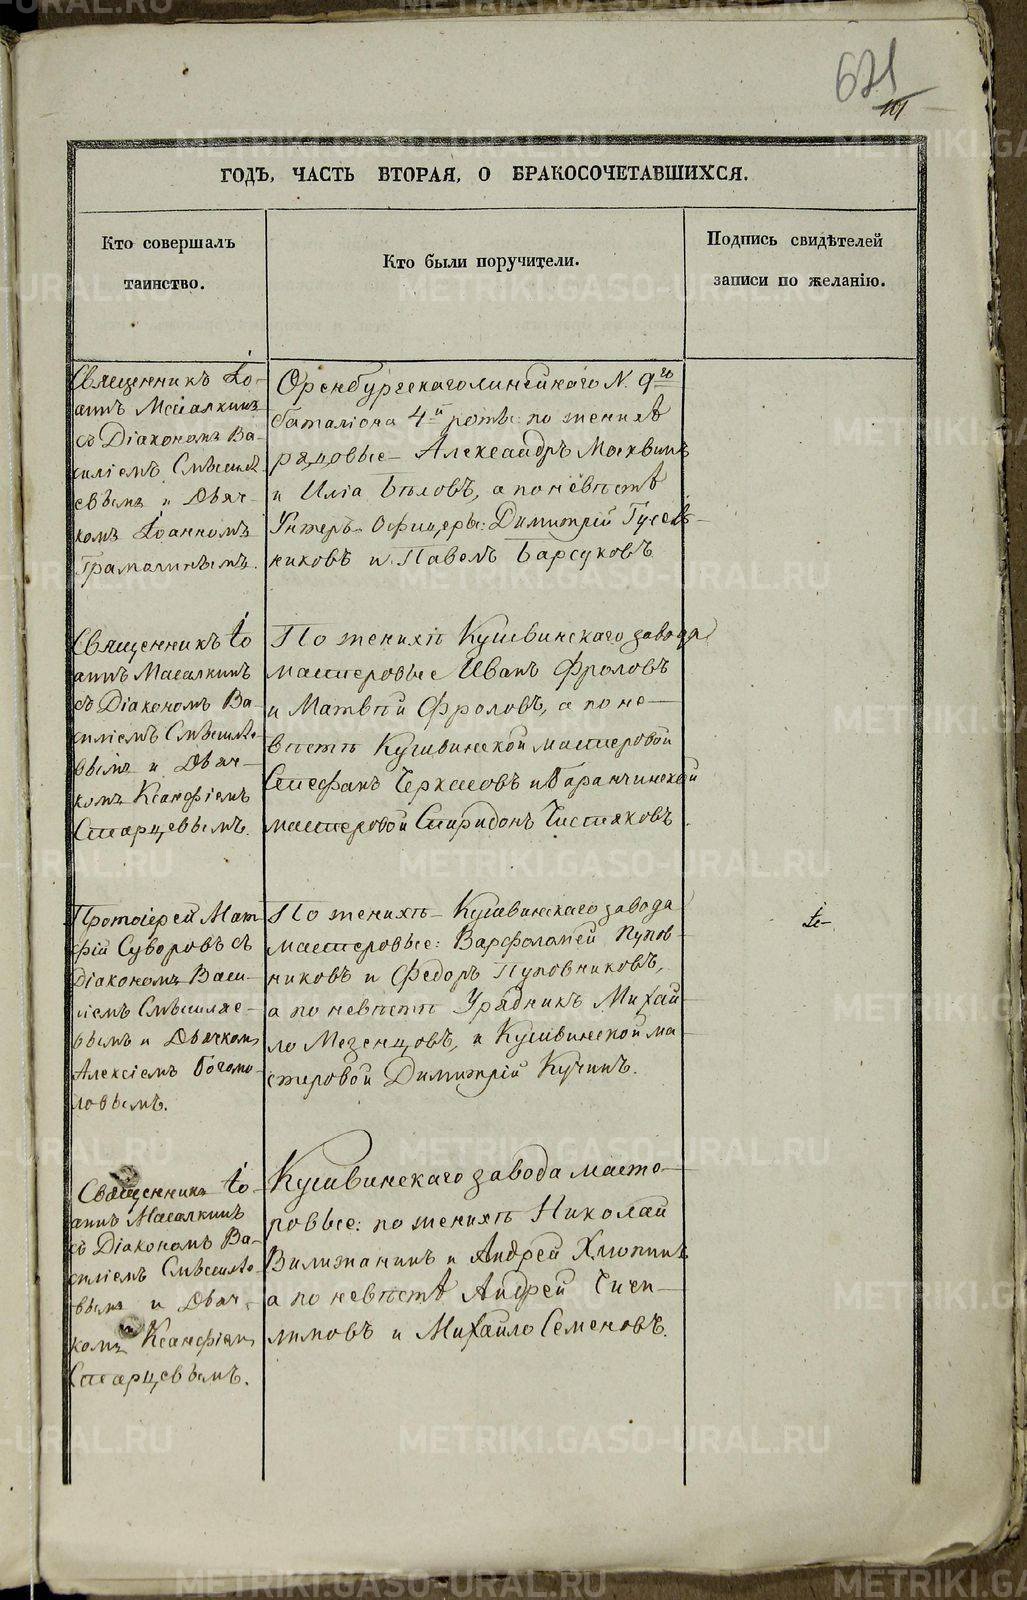 621
101
ГОДЪ, ЧАСТЬ ВТОРАЯ, О БРАКОСОЧЕТАВШИХСЯ.
Кто совершалъ
таинство.
Кто были поручители.
Подпись свидѣтелей
записи по желанію.
Священникъ Іо-
аннъ Масалкинъ
съ Діакономъ Ва-
силіемъ
евымъ и Дьяч-
комъ Іоанномъ
Оренбургскаго линейнаго N. 9го
баталіона 4й роты: по женихѣ
рядовые Александръ Москвинъ
и Иліа Бѣловъ, а по невѣстѣ
Унтеръ-Офицеры: Димитрій Гусель-
никовъ и Павелъ Барсуковъ
Священникъ Іо
аннъ Масалкинъ
съ Діакономъ Ва-
силіемъ
вымъ и Дьяч-
комъ Ксанфіемъ
Старцевымъ.
По женихѣ Кушвинскаго завода
мастеровые Иванъ Фроловъ
и Матвѣй Фроловъ, а по не-
вѣстѣ Кушвинской мастеровой
Стефанъ Черкасовъ и Баранчинской
мастеровой Спиридонъ Чистяковъ
Протоіерей Мат-
фій Суворовъ съ
Діакономъ Васи-
ліемъ
вымъ и Дьячкомъ
Алексіемъ Богомо-
ловымъ.
По женихѣ Кушвинскаго завода
мастеровые: Варфоломей Пупов-
никовъ и Федоръ Пуповниковъ,
а по невѣстѣ Урядникъ Михай-
ло Мезенцовъ, и Кушвинской ма-
стеровой Димитрій Кучинъ.
Священникъ Іо-
аннъ Масалкинъ
съ Діакономъ Ва-
силіемъ
вымъ и Дьяч-
комъ Ксанфіемъ
Старцевымъ.
Кушвинскаго завода масте-
ровые: по женихѣ Николай
Вилижанинъ и Андрей Хлопинъ
а по невѣстѣ Андрей
и Михайло Семеновъ.
METRIKI.GASO-URAL.RU